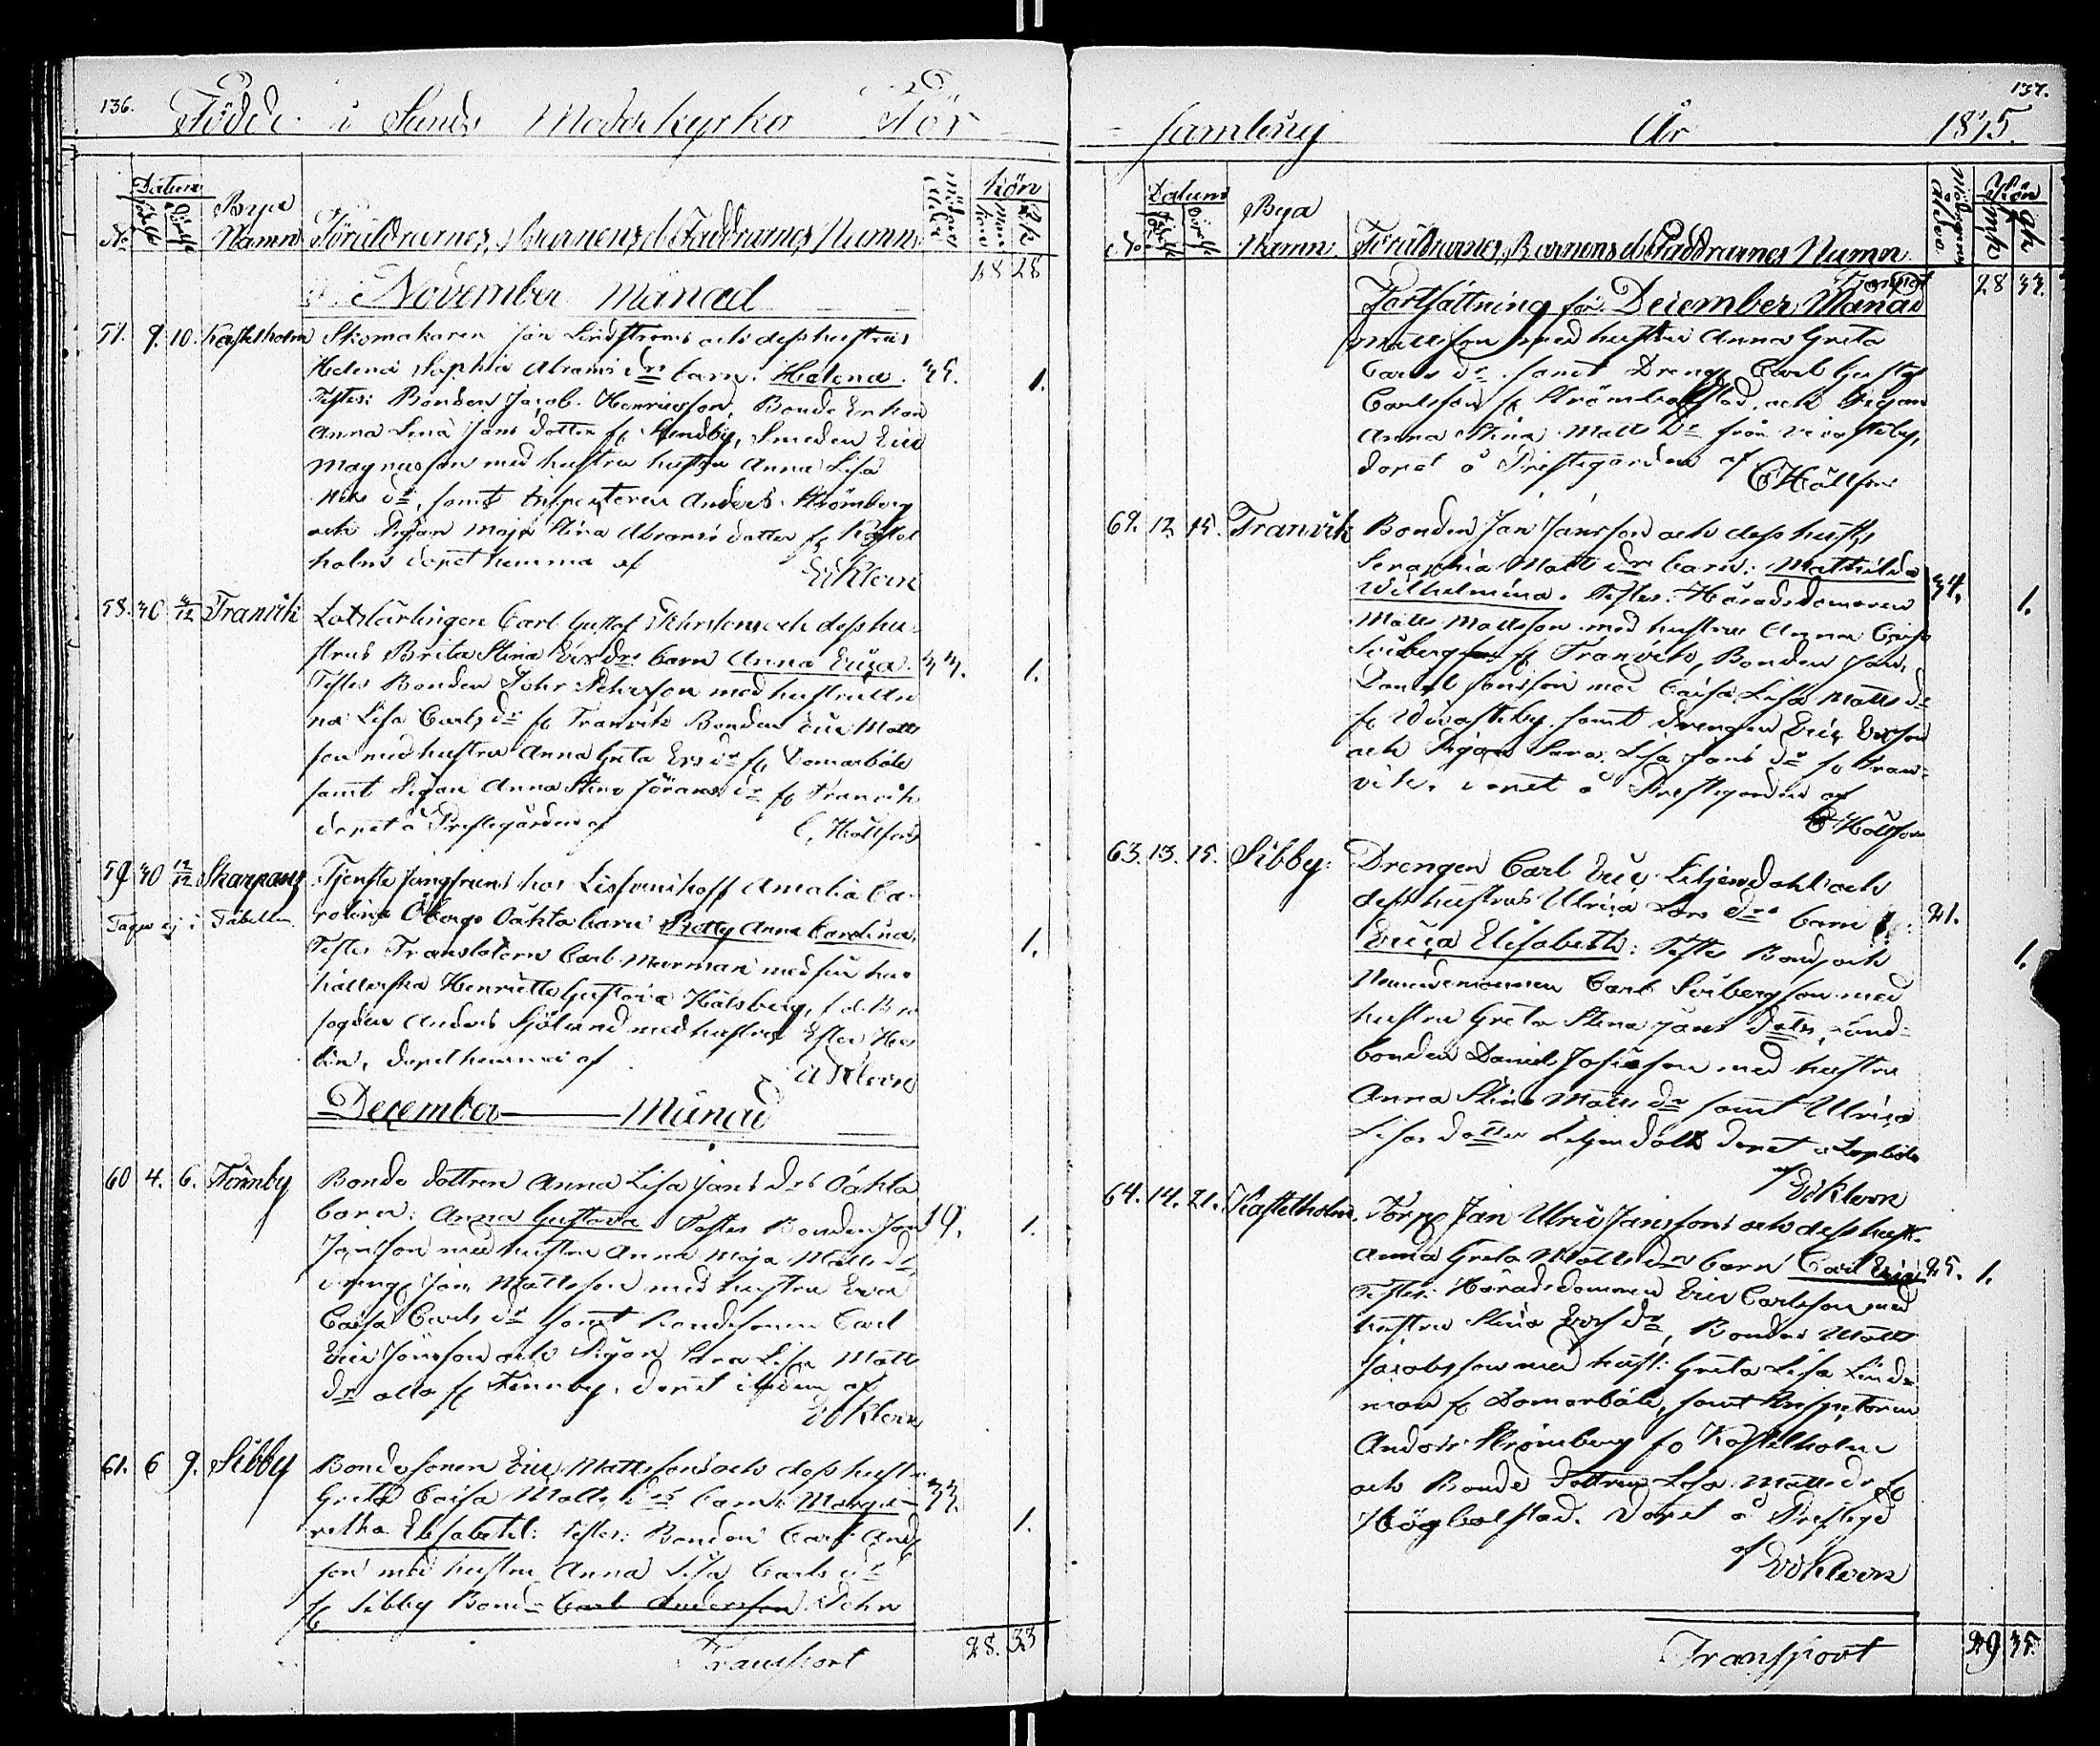 136. Födde i Sunds Moderkyrko För
Datum Kön
No Födelse Döpelse Byа Namn Föräldrarnes, Barnens et Faddrarnes Namn Mankön Qk
28 28
November Månad
57. 9. 10. Kastelholm Skomakaren Jan Lindströms och dess hustrus
Helena Sophia Abrams drs barn: Helena. 35. 1.
Testes: Bonden Jacob Henricsson, Bonde Enkan
Anna Lena Jans dotter fr Sundby, Smeden Eric
Magnusson med hustru hustru Anna Lisa
Nils dr, samt Inspectoren Anders Strömberg
och Pigan Maja Stina Abrams dotter fr Kastel
holm döpet hemma af
E V Kleen
58. 30 3/12 Tranvik Lotslärlingen Carl Gustaf och dess hu
strus Brita Stina Ers drs barn Anna Erica. 33. 1.
Testes Bonden Johr med hustru An
na Lisa Carls dr fr Tranvik Bonden Eric Matts
son med hustru Anna Greta Ers dr fr Domarböle
samt Pigan Anna Stina Görans dr fr Tranvik
döpet å Prestegården af C. Hällfors
59 30 12/12 Skarpans Tjenste Jungfruns hos Amalia Ca
Tages ej i Tabellen rolina Öbergs Oäkta barn Betty Anna Carolina. 1.
Testes Translatorn Carl med sin hus
hållerska Henriette Gustava
fogden Anders Sjölund med hustru Ester He
lin, döpet hemma af
E V Kleen
December Månad
60 4. 6. Finnby Bonde dottren Anna Lisa Jans drs Oäkta
barn: Anna Gustava. Testes Bonden Jan 19. 1.
Jansson med hustru Anna Maja Matts dr,
dreng Jan Mattsson med hustru Eva
Caisa Carls dr samt Bondesonen Carl
Eric Jansson och Pigan Sara Lisa Matts
dr alla fr Finnby, döpet af
E V Kleen
61. 6 9. Sibby Bondesonen Eric Mattssons och dess hustrus
Greta Caisa Matts drs barn: Marga- 33.
retha Elisabeth: Testes: Bonden Carl Anders 1.
son med hustru Anna Lisa Carls dr
fr Sibby Bonde Carl Andersson John
Transport 28. 33
137.
samling År 1875.
Datum Kön
No Födelse Döpelse Bya Namn. Föräldrarnes, Barnens et Faddrarnes Namn Mödrarnes ålder. Mk Qk
Transport 28 33.
Fortsättning för December Månad
Mattsson med hustru Anna Greta
Carls dr samt Dreng Carl Gustaf
Carlsson fr Strömbolstad, och Pigan
Anna Stina Matts dr från Vivastby,
döpet å Prestegården af
C Hällfors
62. 12 15. Tranvik Bonden Jan Jansson och dess hustrus
Seraphia Matts drs barn: Mathilda
Wilhelmina. Testes: Häradsdomaren 34. 1.
Matts Mattsson med hustru Anna Caisa
Seiberg fr Tranvik, Bonden Jan
Daniel Jansson med Caisa Lisa Matts dr
fr Vivastby samt drengen Eric Ersson
och Pigan Sara Lisa Jans dr fr Tran-
vik. döpet å Prestegården af
C Hällfors
63. 13. 15. Sibby: Drengen Carl Eric Liljendahl och
dess hustrus Ulrica Lars drs barn: 21.
Erica Elisabeth: Testes Bond och 1.
Nämndemannen Carl med
hustru Greta Stina Jans dotter,
bonden Daniel Josefsson med hustru
Anna Stina Matts dr samt Ulrica
Lisas dotter Liljendahl döpet
af E V Kleen
64. 14. 21. Kastelholm. Torpr Jan Ulric Janssons och dess hust.
Anna Greta Matts drs barn Carl Eric 25. 1.
Testes: Häradsdomaren Eric Carlsson med
hustru Stina Ers dr, Bonden Matts
Jacobsson med hust: Greta Lisa Lind-
man fr Domarböle, samt Inspectoren
Anders Strömberg fr Kastelholm
och Bonde dottren Lisa Matts dr fr
Högbolstad. Döpet å Prestegd
af E V Kleen
Transport 29 35.